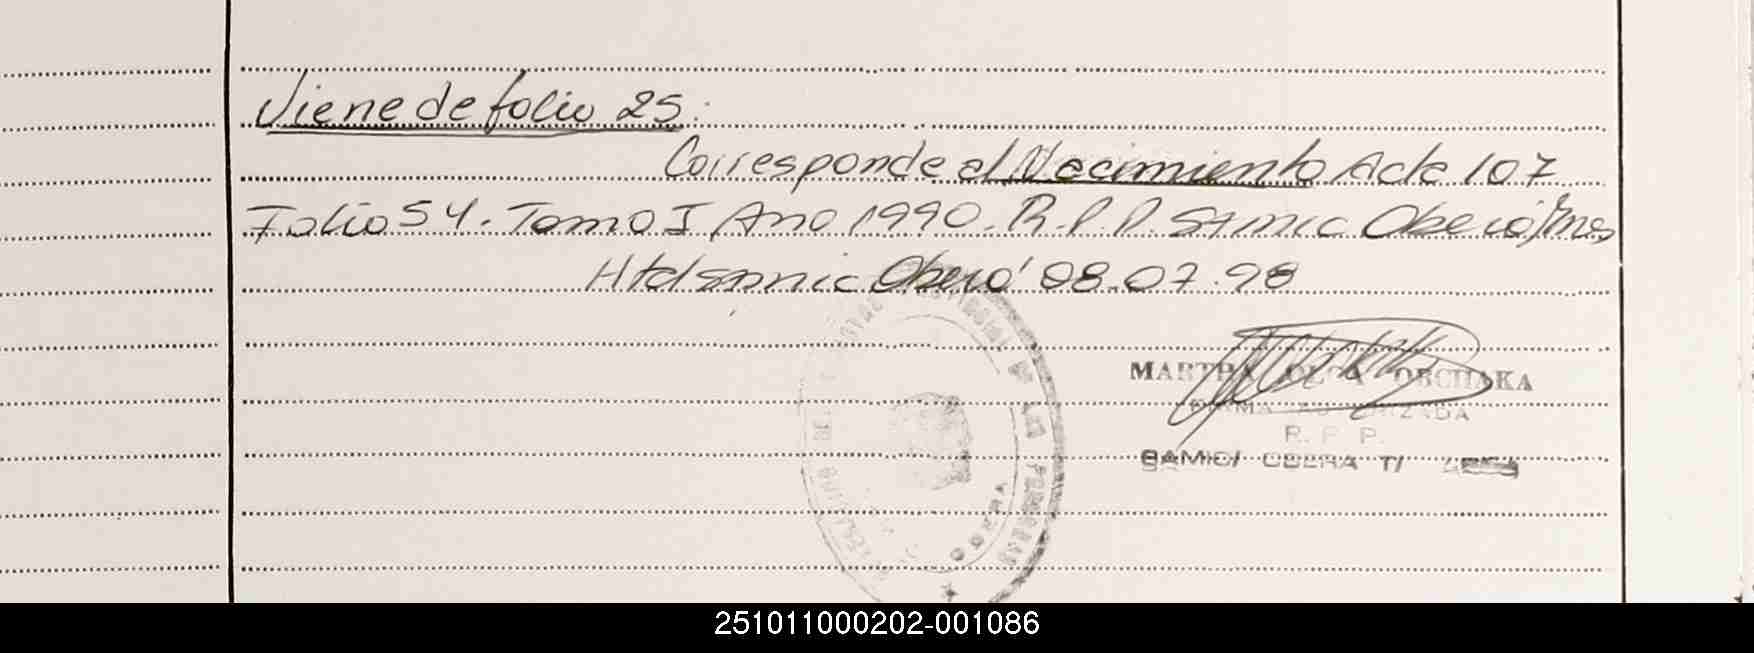 Viene de folio 25.
Corresponde al Nacimiento Acta 107
Folio 54. Tomo I Año 1990. R.P.P. Samic Oberá/Mnes
Htal samic Oberá 08.07.98
MARTHA OLGA OBCHAKA
FIRMA AUTORIZADA
R. P. P.
SAMIC/ OBERA T/
251011000202-001086